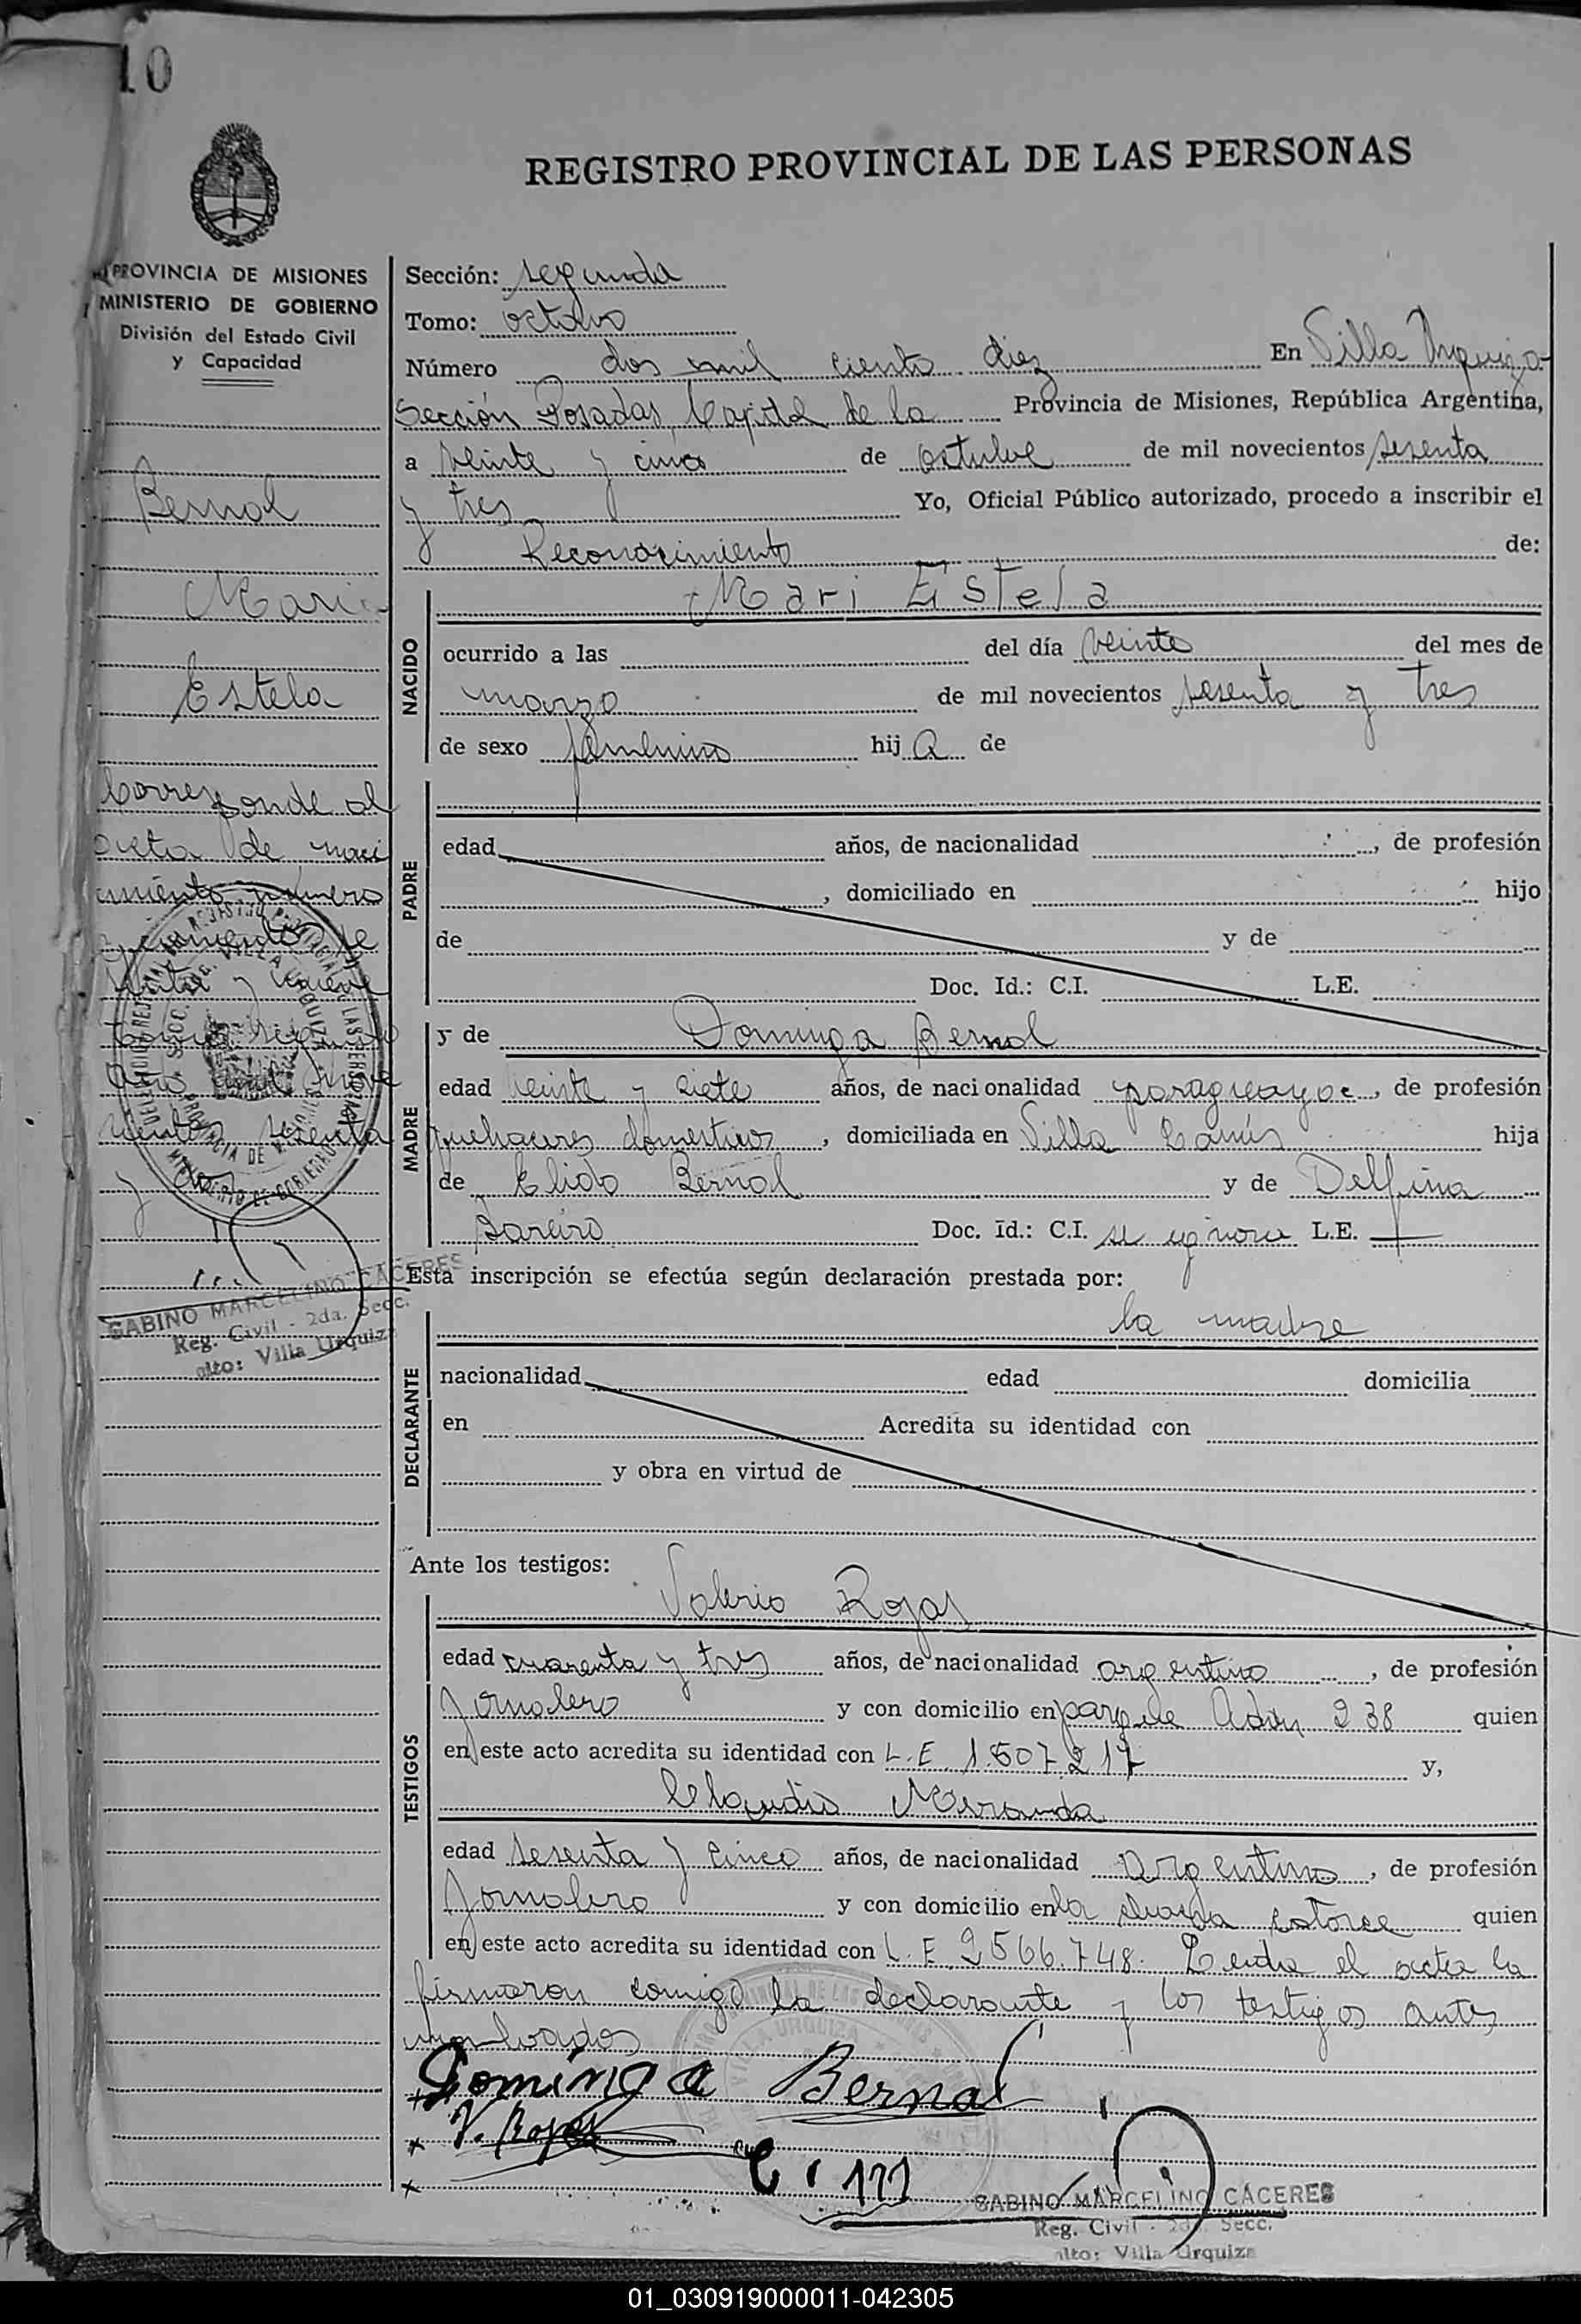 10
REGISTRO PROVINCIAL DE LAS PERSONAS
PROVINCIA DE MISIONES
MINISTERIO DE GOBIERNO
División del Estado Civil
y Capacidad
Bernal
Mari
Estela
Corresponde al
acta de naci
miento número
y nueve
Año mil nove
cientos sesenta
y tres
GABINO MARCELINO CACERES
Reg. Civil - 2da. Secc.
alto: Villa Urquiza
Sección: segunda
Tomo: octavo
Número dos mil ciento diez En Villa Urquiza
Sección Posadas, Capital de la Provincia de Misiones, República Argentina,
a veinte y cinco de octubre de mil novecientos sesenta
y tres Yo, Oficial Público autorizado, procedo a inscribir el
Reconocimiento de:
NACIDO
Mari Estela
ocurrido a las del día veinte del mes de
marzo de mil novecientos sesenta y tres
de sexo femenino hija de
PADRE
edad años, de nacionalidad , de profesión
, domiciliado en hijo
de y de
Doc. Id.: C.I. L.E.
MADRE
y de Dominga Bernal
edad veinte y siete años, de nacionalidad paraguaya, de profesión
quehaceres domesticos, domiciliada en Villa Lanús hija
de Elido Bernal y de Delfina
Bareiro Doc. Id.: C.I. se ignora L.E.
Esta inscripción se efectúa según declaración prestada por:
DECLARANTE
la madre
nacionalidad edad domicilia
en Acredita su identidad con
y obra en virtud de
Ante los testigos:
TESTIGOS
Valerio Rojas
edad cuarenta y tres años, de nacionalidad argentino, de profesión
Jornalero y con domicilio en parque Adam 238 quien
en este acto acredita su identidad con L.E. 1.507.217 y,
Claudio Miranda
edad sesenta y cinco años, de nacionalidad Argentino, de profesión
Jornalero y con domicilio en la chacra catorce quien
en este acto acredita su identidad con L.E. 2566.748. Leida el acta la
firmaron conmigo la declarante y los testigos antes
nombrados
Dominga Bernal
V. Rojas
GABINO MARCELINO CACERES
Reg. Civil - 2da. Secc.
alto: Villa Urquiza
01_030919000011-042305